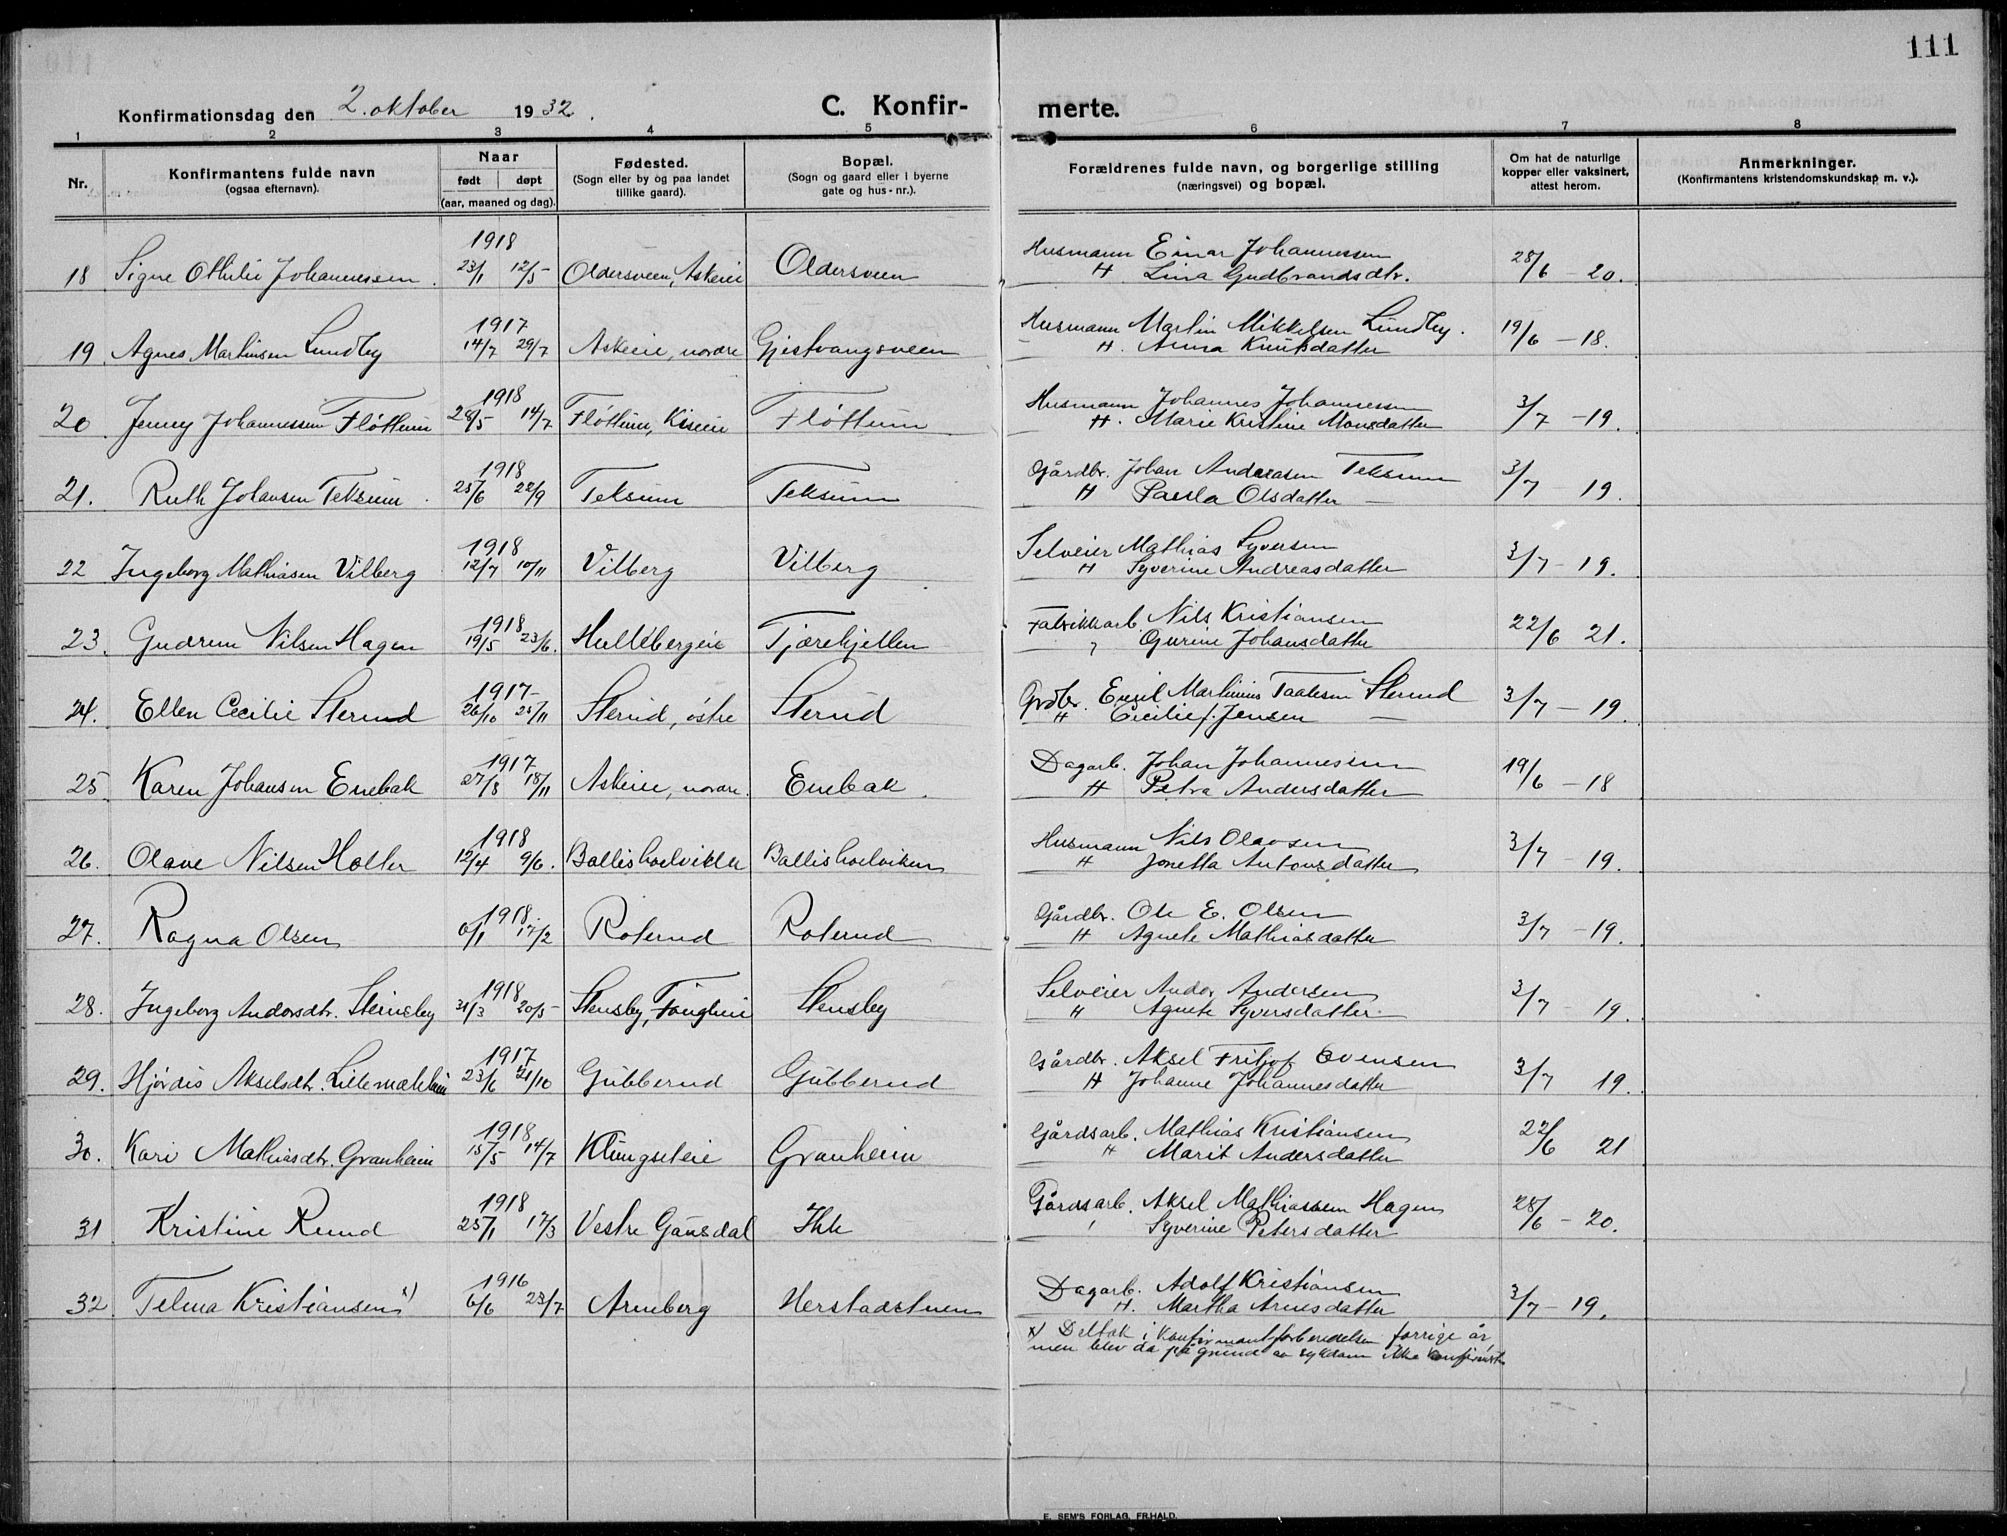 111
Konfirmationsdag den 2. oktober 1932.
C. Konfir- merte.
1 2 3 4 5 6 7 8
Nr.
Konfirmantens fulde navn
(ogsaa efternavn).
Naar
født døpt
(aar, maaned og dag).
Fødested.
(Sogn eller by og paa landet
tillike gaard).
Bopæl.
(Sogn og gaard eller i byerne
gate og hus-nr.).
Forældrenes fulde navn, og borgerlige stilling
(næringsvei) og bopæl.
Om hat de naturlige
kopper eller vaksinert,
attest herom.
Anmerkninger.
(Konfirmantens kristendomskundskap m. v.).
1918 Husmann Einar Johannessen
18 Signe Othilie Johannessen. 23/1 12/5 Oldersveen, Askeie Oldersveen H. Lina Gudbrandsdtr. 28/6 - 20.
1917 Husmann Martin Mikkelsen Lundby.
19 Agnes Martinsen Lundby 14/7 29/7 Askeie, nordre Gjestvangsveen H. Anna Knutsdatter 19/6 - 18.
1918 Husmann Johannes Johannessen
20 Jenny Johannessen Fløttum 28/5 14/7 Fløttum, Kiseie Fløttum H. Marie Kristine Monsdatter 3/7 - 19.
1918 Gårdbr. Johan Andreasen Teksum
21. Ruth Johansen Teksum. 25/6 22/9 Teksum Teksum H Paula Olsdatter — 3/7 - 19.
1918 Selveier Mathias Syversen
22 Ingeborg Mathiasen Vilberg 12/7 10/11 Vilberg Vilberg H Syverine Andreasdatter 3/7 - 19.
1918 Fabrikkarb Nils Kristiansen
23. Gudrun Nilsen Hagen 19/5 23/6. Hullebergeie Tjærekjellen Gurine Johansdatter 22/6 21.
1917 Grdbr. Emil Martinius Taalesen Sterud
24. Ellen Cecilie Sterud 26/10 25/11 Sterud, østre Sterud H Cecilie f. Jensen — 3/7 - 19.
1917 Dagarb. Johan Johannessen
25 Karen Johansen Enebak 27/8 18/11 Askeie, nordre. Enebak. H Petra Andersdatter 19/6 - 18
1918 Husmann Nils Olavsen
26. Olave Nilsen Holter 12/4 9/6. Ballishoelvikler Ballishoelviken H Jonetta Antonsdatter 3/7 - 19.
1918 Gårdbr. Ole E. Olsen
27. Ragna Olsen 6/1 17/2 Roterud Roterud H Agnete Mathiasdatter 3/7 - 19.
1918 Selveier Andor Andersen
28. Ingeborg Andorsdtr. Steinsby 31/3 20/5 Stensby, Stensby H Agnete Syversdatter 3/7 - 19.
1917 Gårdbr. Aksel Fritjof Evensen
29. Hjørdis Akselsdtr. Lillemælum 23/6 21/10 Gubberud Gubberud H Johanne Johannesdatter 3/7 19.
1918 Gårdsarb. Mathias Kristiansen
30. Kari Mathiasdtr. Granheim 15/5 14/7 Klungseteie Granheim H Marit Andersdatter 22/6 21
1918 Gårdsarb. Aksel Mathiassen Hagen
31 Kristine Rund 25/1 17/3 Vestre Gausdal Ihle Syverine Petersdatter 28/6 - 20.
1916 Dagarb. Adolf Kristiansen
32 Telma Kristiansen x) 6/6 23/7 Arneberg Herstadstuen H. Martha Arnesdatter 3/7 - 19.
x) Deltok i konfirmantforberedelsen forrige år
men blev da på grund av sykdom ikke konfirmert
E. SEM'S FORLAG, FR.HALD.